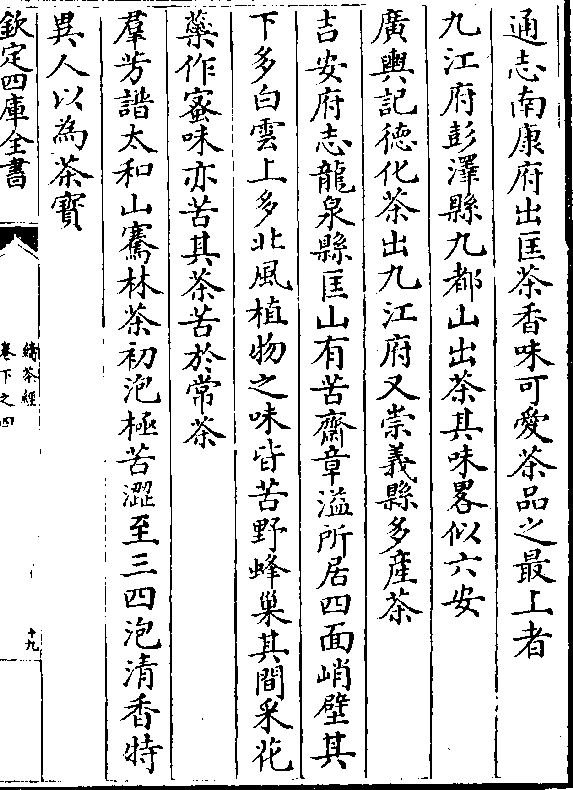 通志南康府出匡茶香味可愛茶品之最上者
九江府彭澤縣九都山出茶其味畧似六安
廣輿記徳化茶出九江府又崇義縣多産茶
吉安府志龍泉縣匡山有苦齋章溢所居四面峭壁其
下多白雲上多北風植物之味皆苦野蜂巢其間采花
蘂作蜜味亦苦其茶苦於常茶
羣芳譜太和山騫林茶初泡極苦澀至三四泡清香特
異人以為茶寶
欽定四庫全書
續茶經
卷下之四
十九